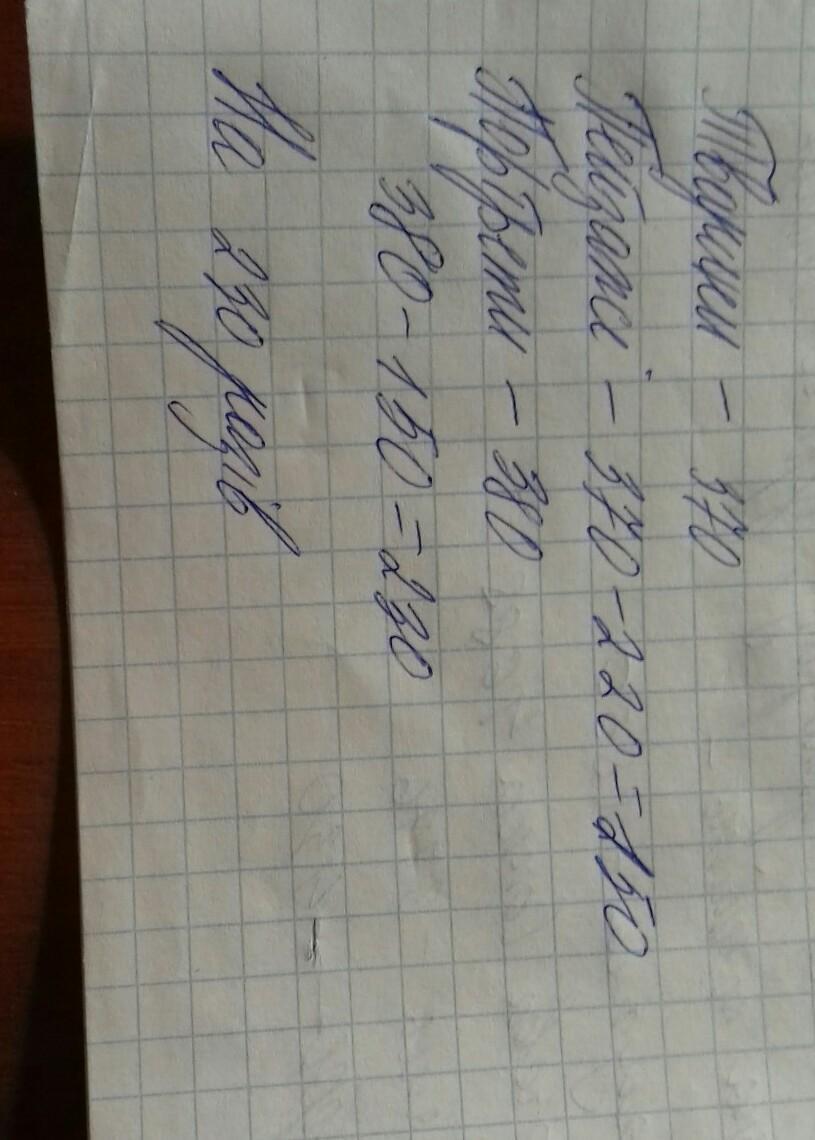 Тварини - 370
Пейзажі - 370-220=150
Портрети - 380
380-150=230
На 230 разів